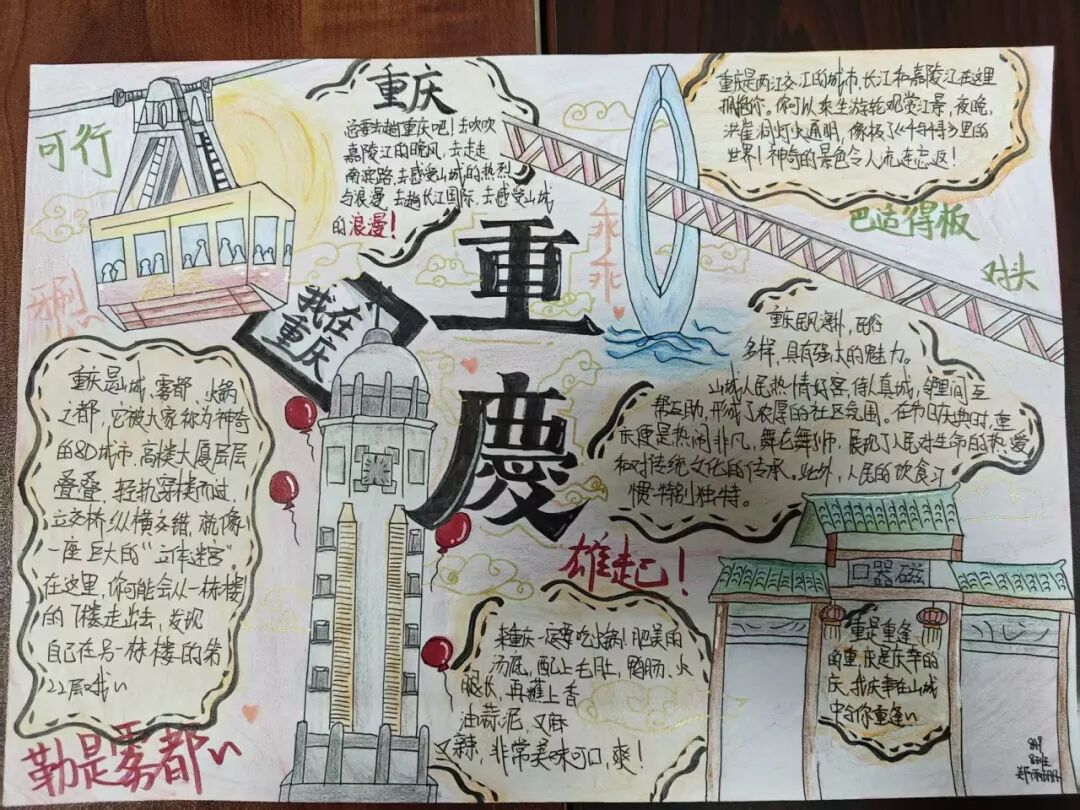 可行
重庆
总要去趟重庆吧！去吹吹
嘉陵江的晚风，去走走
南滨路，去感受山城的热烈
与浪漫，去趟长江国际，去感受山城
的浪漫！
重庆是两江交汇的城市，长江和嘉陵江在这里
拥抱你。你可以乘坐游轮观赏江景，夜晚，
洪崖洞灯火通明，像极了《千与千寻》里的
世界！神奇的景色令人流连忘返！
巴适得板
乖
乖
我在
重庆
重
慶
重庆民风淳朴，
多样，具有强大的魅力。
山城人民热情好客，待人真诚，邻里间互
帮互助，形成了浓厚的社区氛围。在节日庆典时，重
庆便是热闹非凡，舞龙舞狮，展现了人民对生命的热爱
和对传统文化的传承。此外，人民的饮食习
惯特别独特。
重庆是山城，雾都，火锅
之都，它被大家称为神奇
的8D城市，高楼大厦层层
叠叠，轻轨穿楼而过，
立交桥纵横交错，就像
一座巨大的“立体迷宫”，
在这里，你可能会从一栋楼
的1楼走出去，发现
自己在另一栋楼的第
22层哦~
雄起！
来重庆一定要吃火锅！肥美的
汤底，配上毛肚，鸭肠、火
腿长，再蘸上香
油蒜泥，又麻
又辣，非常美味可口，爽！
口器磁
重是重逢
的重，庆是庆幸的
庆，我庆幸在山城
中与你重逢~
勒是雾都~